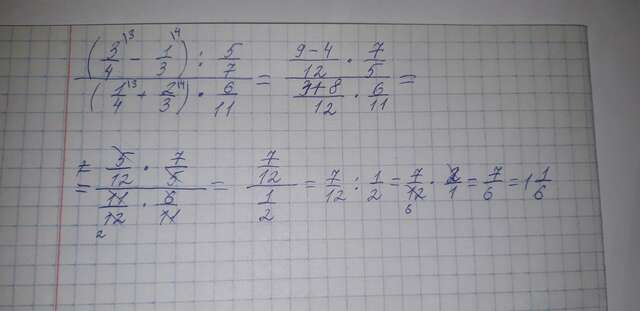 (3/4\3 − 1/3\4) : 5/7 / (1/4\3 + 2/3\4) · 6/11 = (9−4)/12 · 7/5 / (3+8)/12 · 6/11 =
= 5/12 · 7/5 / 11/12 · 6/11 = 7/12 / 1/2 = 7/12 : 1/2 = 7/12 · 2/1 = 7/6 = 1 1/6
2 6